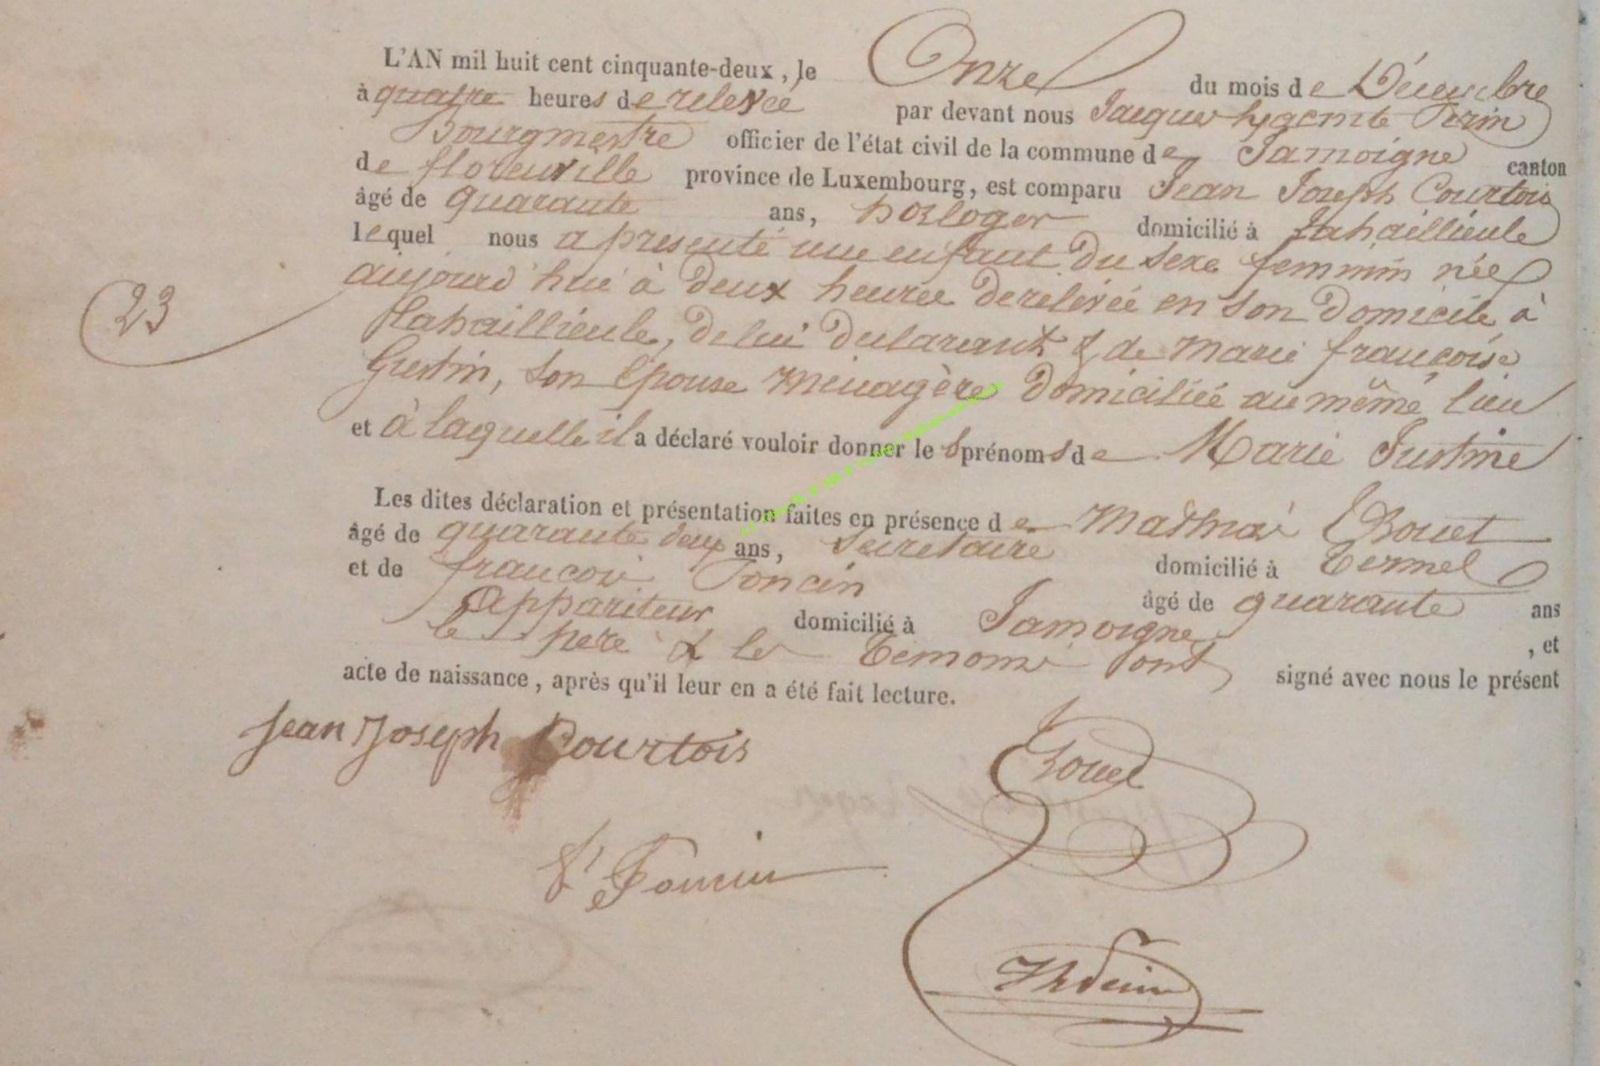 L'AN mil huit cent cinquante-deux, le Onze du mois de Décembre
à quatre heures de relevée par devant nous Jacques hyacinte
Bourgmestre officier de l'état civil de la commune de Jamoigne canton
de florenville province de Luxembourg, est comparu Jean Joseph Courtois
âgé de quarante ans, horloger domicilié à Lahaillieule
lequel nous a présenté une enfant du sexe féminin née
23
aujourd'hui à deux heures de relevée en son domicile à
Lahaillieule, de lui déclarant & de Marie françoise
Gustin, son épouse ménagère domiciliée au même lieu
et à laquelle il a déclaré vouloir donner les prénoms de Marie Justine
Les dites déclaration et présentation faites en présence de Mathias Bouet
âgé de quarante deux ans, secrétaire domicilié à Termel
et de françois Poncin âgé de quarante ans
Appariteur domicilié à Jamoigne, et
le père & les témoins ont signé avec nous le présent
acte de naissance, après qu'il leur en a été fait lecture.
Jean Joseph Courtois
Bouet